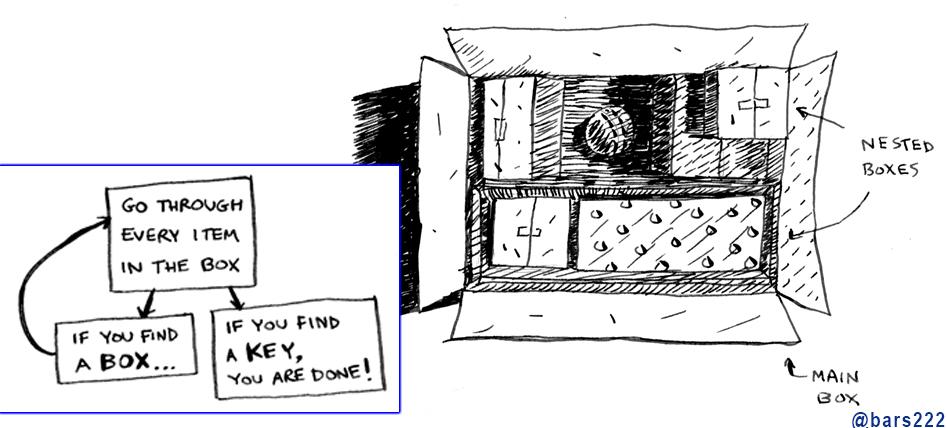 GO THROUGH
EVERY ITEM
IN THE BOX
IF YOU FIND
A BOX...
IF YOU FIND
A KEY,
YOU ARE DONE!
NESTED
BOXES
MAIN
BOX
@bars222